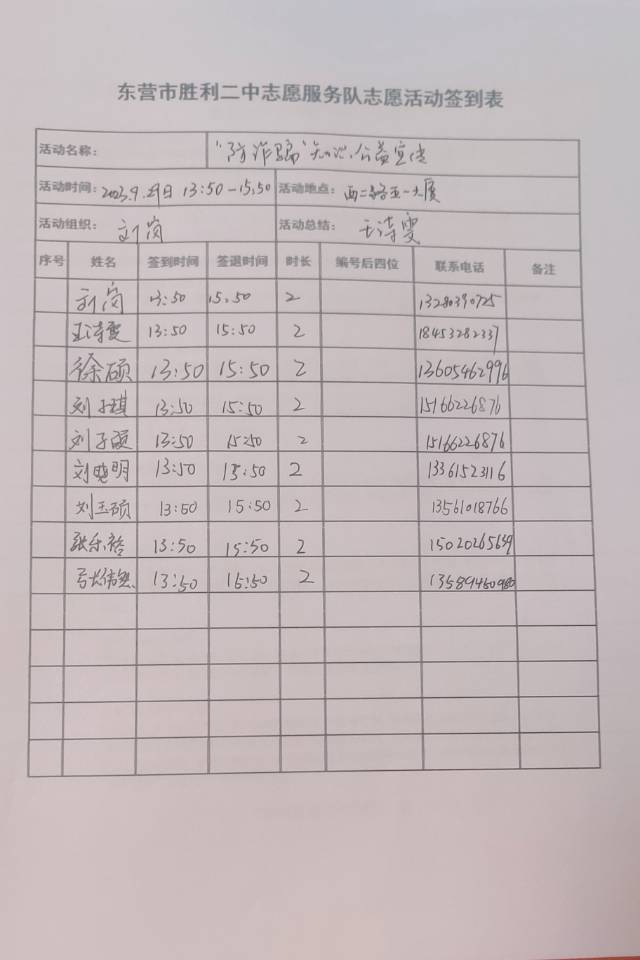 东营市胜利二中志愿服务队志愿活动签到表
活动名称： "防诈骗"知识公益宣传
活动时间：2023.9.29日 13:50-15:50 活动地点：西二路五一大厦
活动组织： 刘岗 活动总结： 王诗雯
序号 姓名 签到时间 签退时间 时长 编号后四位 联系电话 备注
刘岗 13:50 15:50 2 13280390725
王诗雯 13:50 15:50 2 18453282337
徐硕 13:50 15:50 2 13605462996
刘子琪 13:50 15:50 2 15166226876
刘子硕 13:50 15:50 2 15166226876
刘晓明 13:50 15:50 2 13361523116
刘玉硕 13:50 15:50 2 13561018766
张乐裕 13:50 15:50 2
13:50 15:50 2